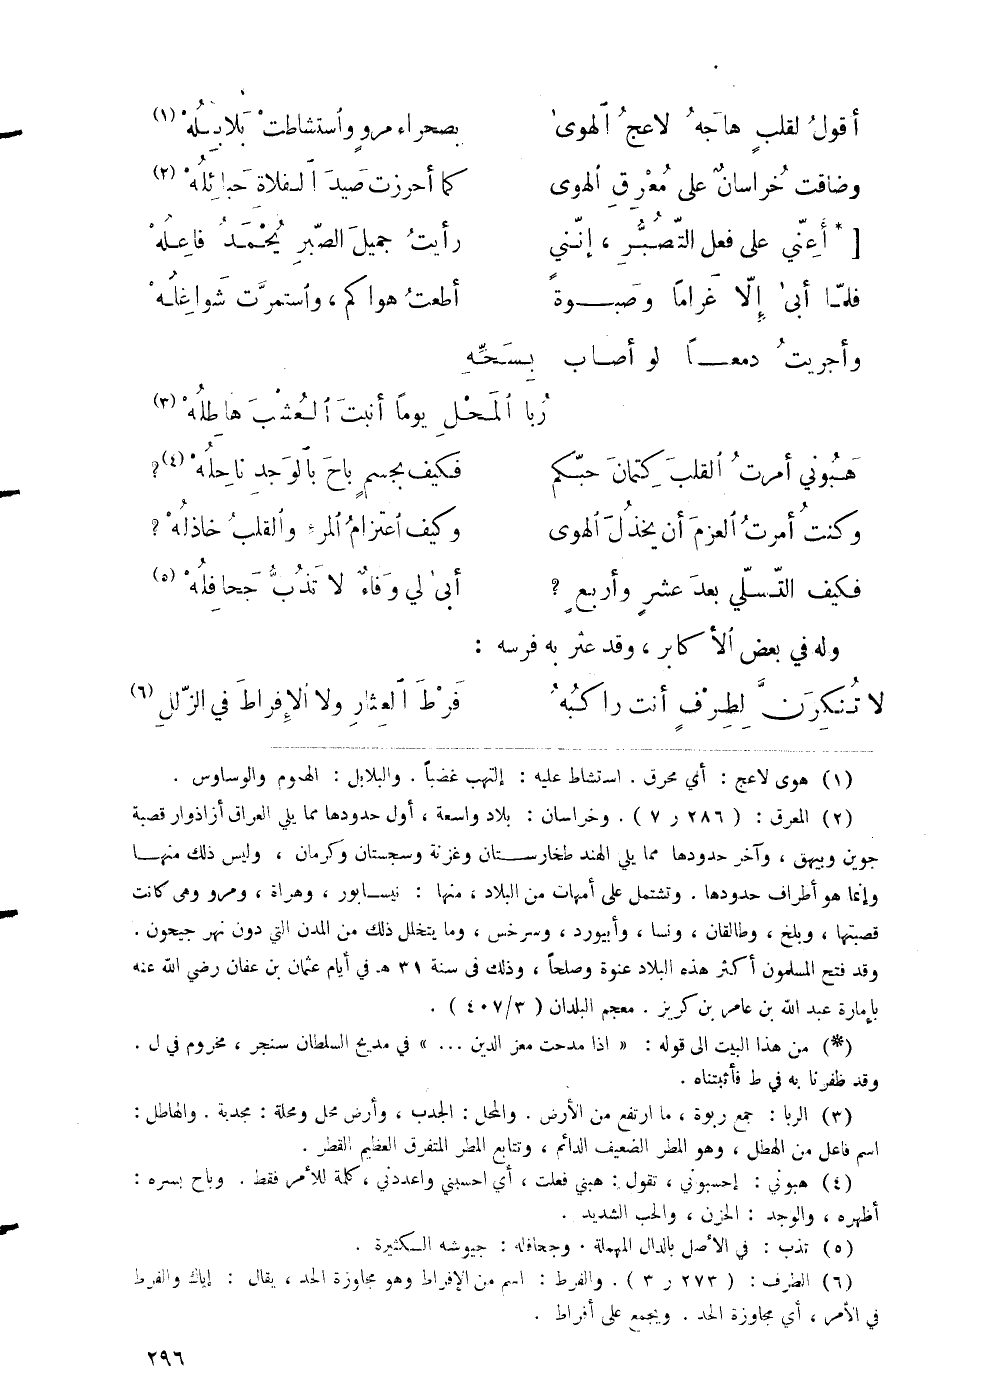 أقولُ لقلبٍ هاجَهُ لاعجُ ٱلهوىٰ بصحراء مروٍ وٱستشاطتْ بَلابِلُهْ (١)
وضاقت خُراسانٌ على مُعْرِقِ ٱلهوى كما أحرزت صَيدَ ٱلفلاةِ حَبائِلُهْ (٢)
[ * أَعِنّي على فعل التّصبُّرِ ، إنّني رأيتُ جميلَ الصّبرِ يُحْمَدُ فاعِلُهْ
فلمّا أبىٰ إِلّا غَراماً وصَبوةً أطعتُ هواكم ، وٱستمرَّت شواغِلُهْ
وأجريتُ دمعاً لو أصاب بِسَحِّهِ
رُبا ٱلمَحْلِ يوماً أنبتَ ٱلعُشْبَ هاطِلُهْ (٣)
هَبُوني أمرتُ ٱلقلبَ كِتمانَ حبّكم فكيف بجسمٍ باحَ بٱلوَجدِ ناحِلُهْ (٤) ؟
وكنتُ أمرتُ ٱلعزمَ أن يخذُلَ ٱلهوى وكيف ٱعتزامُ ٱلمرءِ وٱلقلبُ خاذلُهْ ؟
فكيف التّسلّي بعدَ عشرٍ وأربعٍ ؟ أبىٰ لي وَفاءٌ لا تَذُبُّ جَحافِلُهْ (٥)
وله في بعض ٱلأكابر ، وقد عثر به فرسه :
لا تُنكِرَنَّ لِطِرْفٍ أنت راكبُهُ فَرْطَ ٱلعِثارِ ولا ٱلإفراطَ في الزّللِ (٦)
(١) هوى لاعج : أي محرق . استشاط عليه : إلتهب غضباً . والبلابل : الهموم والوساوس .
(٢) المعرق : ( ٢٨٦ ر ٧ ) . وخراسان : بلاد واسعة ، أول حدودها مما يلي العراق أزاذوار قصبة
جوين وبيهق ، وآخر حدودها مما يلي الهند طخارستان وغزنة وسجستان وكرمان ، وليس ذلك منها
وإنما هو أطراف حدودها . وتشتمل على أمهات من البلاد ، منها : نيسابور ، وهراة ، ومرو وهى كانت
قصبتها ، وبلخ ، وطالقان ، ونسا ، وأبيورد ، وسرخس ، وما يتخلل ذلك من المدن التي دون نهر جيحون .
وقد فتح المسلمون أكثر هذه البلاد عنوة وصلحاً ، وذلك فى سنة ٣١ هـ في أيام عثمان بن عفان رضي الله عنه
بإمارة عبد الله بن عامر بن كريز . معجم البلدان ( ٣/٤٠٧ ) .
(*) من هذا البيت الى قوله : « اذا مدحت معز الدين ... » في مديح السلطان سنجر ، مخروم في ل .
وقد ظفرنا به في ط فأثبتناه .
(٣) الربا : جمع ربوة ، ما ارتفع من الأرض . والمحل : الجدب ، وأرض محل ومحلة : مجدبة . والهاطل :
اسم فاعل من الهطل ، وهو المطر الضعيف الدائم ، وتتابع المطر المتفرق العظيم القطر .
(٤) هبوني : إحسبوني ، تقول : هبني فعلت ، أي احسبني واعددني ، كلمة للأمر فقط . وباح بسره :
أظهره ، والوجد : الحزن ، والحب الشديد .
(٥) تذب : في الأصل بالدال المهملة . وجحافله : جيوشه الكثيرة .
(٦) الطرف : ( ٢٧٣ ر ٣ ) . والفرط : اسم من الإفراط وهو مجاوزة الحد ، يقال : إياك والفرط
في الأمر ، أي مجاوزة الحد . ويجمع على أفراط .
٢٩٦